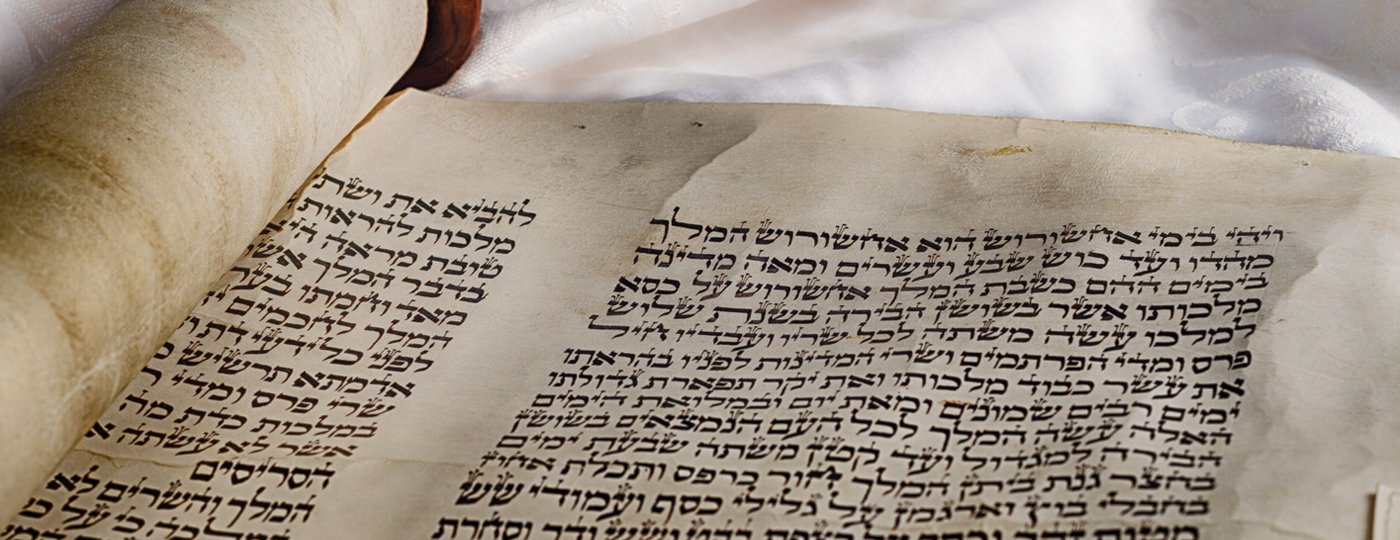 ויהי בימי אחשורוש הוא אחשורוש המלך
מהדו ועד כוש שבע ועשרים ומאה מדינה
בימים ההם כשבת המלך אחשורוש על כסא
מלכותו אשר בשושן הבירה בשנת שלוש
למלכו עשה משתה לכל שריו ועבדיו חיל
פרס ומדי הפרתמים ושרי המדינות לפניו בהראתו
את עשר כבוד מלכותו ואת יקר תפארת גדולתו
ימים רבים שמונים ומאת יום ובמלואת הימים
האלה עשה המלך לכל העם הנמצאים בשושן
הבירה למגדול ועד קטן משתה שבעת ימים
בחצר גנת ביתן המלך חור כרפס ותכלת אחוז
בחבלי בוץ וארגמן על גלילי כסף ועמודי שש
מטות זהב וכסף על רצפת בהט ושש ודר וסחרת
להביא את ושתי
מלכות להראות
טובת מראה היא
בדבר המלך אשר
מאד וחמתו בערה
המלך לחכמים
לפני כל ידעי דת
אדמתא תרשיש
שרי פרס ומדי
במלכות כדת מה
אשר לא עשתה
הסריסים
המלך והשרים לא
המלכה כי על